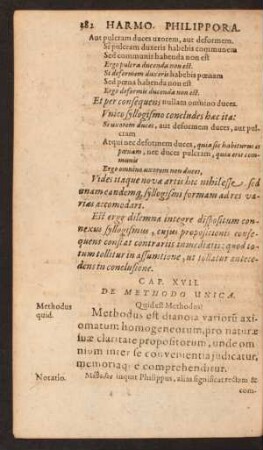 282 HARMO. PHILIPPORA.
Aut pulcram duces uxorem, aut deformem.
Si pulcram duxeris habebis communem
Sed communis habenda non est
Ergo pulcra ducenda non est.
Si deformem duxeris habebis pœnam
Sed pœna habenda non est
Ergo deformis ducenda non est.
Et per consequens nullam omnino duces.
Unico syllogismo concludes hac ita:
Si uxorem duces, aut deformem duces, aut pulcram
Atqui nec deformem duces, quia sic habiturus es
pœnam, nec duces pulcram, quia erit communis
Ergo omnino uxorem non duces,
Vides itaque novæ artis hic nihil esse, sed
unam eandemq; syllogismi formam ad res varias
accomodari.
Est ergo dilemma integre dispositum connexus
syllogismus, cujus propositionis consequens
constat contrariis immediatis: quod totum
tollitur in assumtione, ut tollatur antecedens
in conclusione.
CAP. XVII.
DE METHODO UNICA.
Quid est Methodus?
Methodus quid.
Methodus est dianoia variorũ axiomatum
homogeneorum, pro naturæ
suæ claritate propositorum, unde omnium
inter se convenientia judicatur,
memoriaque comprehenditur.
Notatio.
Methodus inquit Philippus, alim significat rectam &
com-